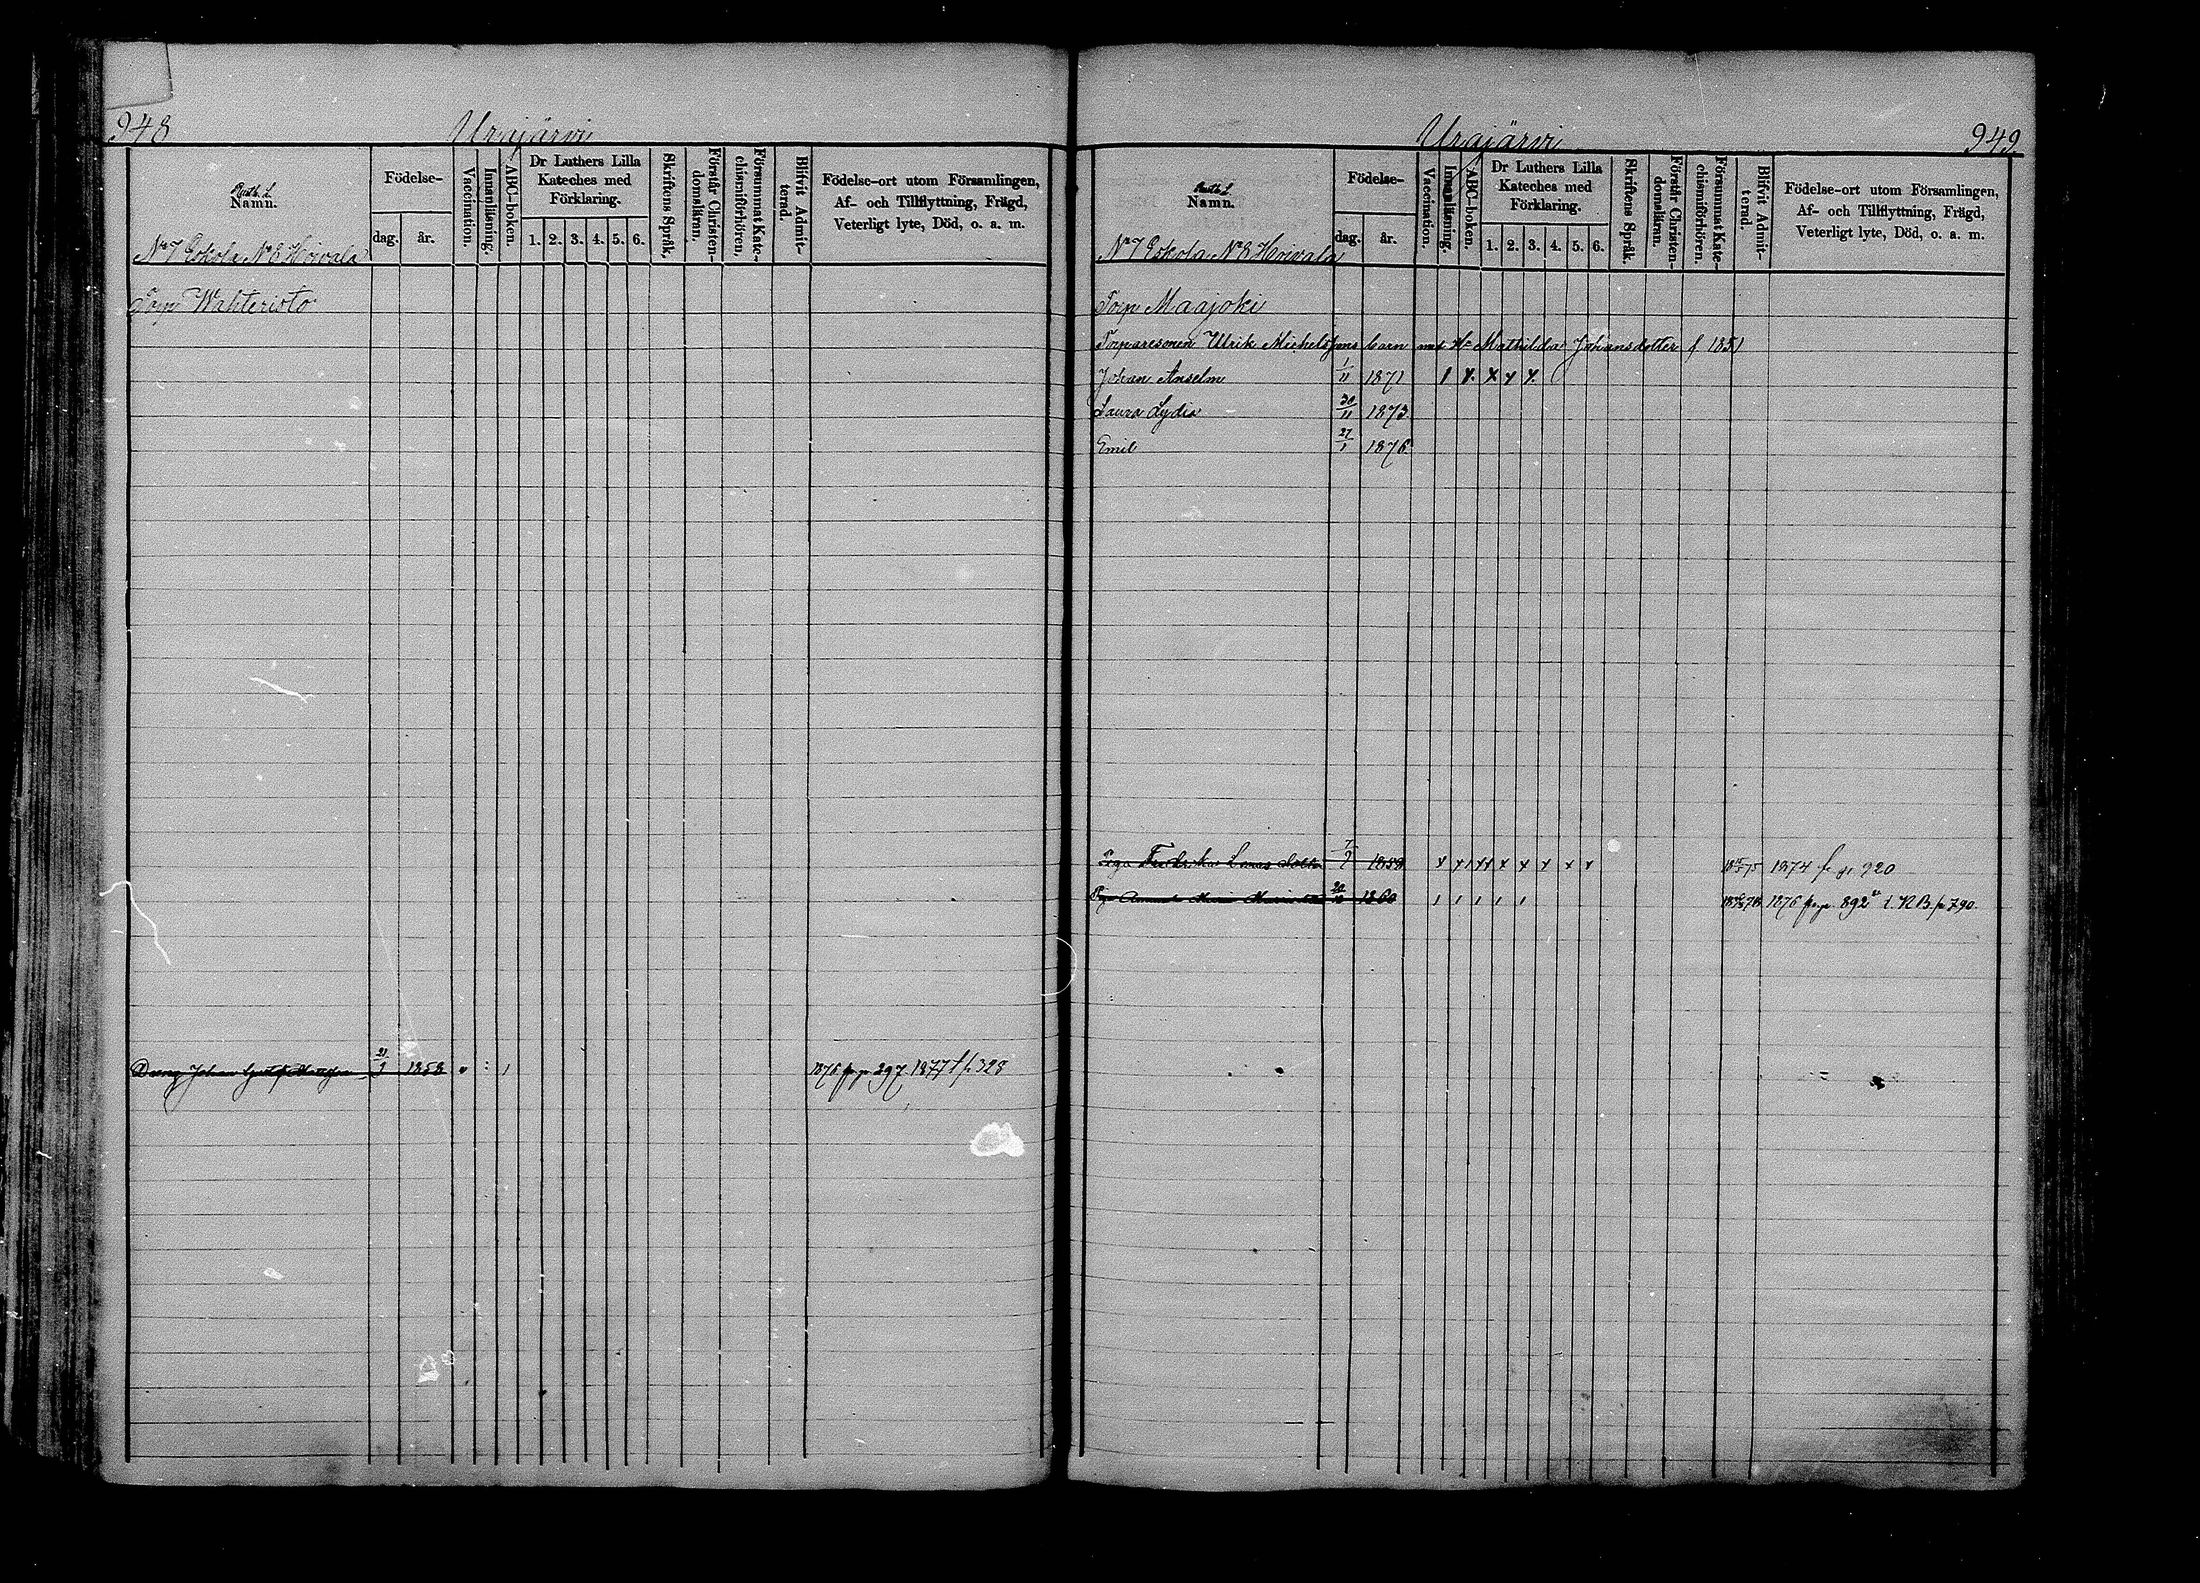 948
Urajärvi
Namn.
Födelse-
dag.
år.
Vaccination.
Innanläsning.
ABC-boken.
Dr Luthers Lilla
Kateches med
Förklaring.
1. 2. 3. 4. 5. 6.
Skriftens Språk.
Förstår Christen-
domsläran.
Försummat Kate-
chismiförhören.
Blifvit Admit-
terad.
Födelse-ort utom Församlingen,
Af- och Tillflyttning, Frägd,
Veterligt lyte, Död, o. a. m.
No 7 Eskola No 8 Hoivala
Torp Wahteristo
Dreng Johan 21/9 1858 1876 fr p 297 1877 t p 328
Urajärvi
949
Namn.
Födelse-
dag.
år.
Vaccination.
Innanläsning.
ABC-boken.
Dr Luthers Lilla
Kateches med
Förklaring.
1. 2. 3. 4. 5. 6.
Skriftens Språk.
Förstår Christen-
domsläran.
Försummat Kate-
chismiförhören.
Blifvit Admit-
terad.
Födelse-ort utom Församlingen,
Af- och Tillflyttning, Frägd,
Veterligt lyte, Död, o. a. m.
No 7 Eskola No 8 Hoivala
Torp Maajoki
Torparesonen Ulrik Michelssons barn med H. Mathilda Johansdotter f. 1851
Johan Anselm 1/11 1871
Laura Lydia 30/11 1873
Emil 27/1 1876
Piga Fredrika 7/9 1858 1874 fr p. 920
Piga 1860 1876 fr p 892 t. N B p 790.